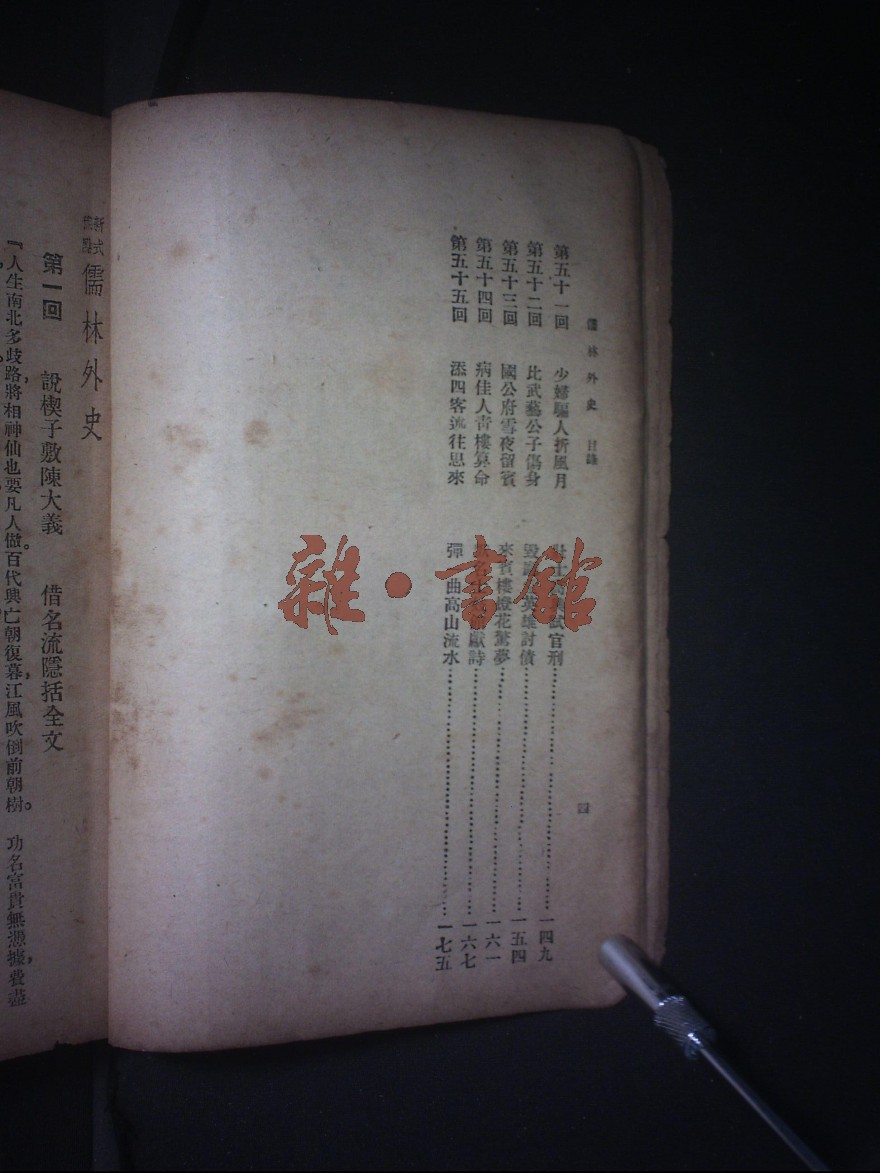 儒林外史 目錄
四
第五十一回 少婦騙人折風月 試官刑 一四九
第五十二回 比武藝公子傷身 英雄討債 一五四
第五十三回 國公府雪夜留賓 來賓樓燈花驚夢 一六一
第五十四回 病佳人青樓算命 獻詩 一六七
第五十五回 添四客述往思來 彈 曲高山流水 一七五
新式
儒林外史
第一回 說楔子敷陳大義 借名流隱括全文
『人生南北多歧路，將相神仙也要凡人做。百代興亡朝復暮，江風吹倒前朝樹。 功名富貴無憑據，費盡
雜·書館